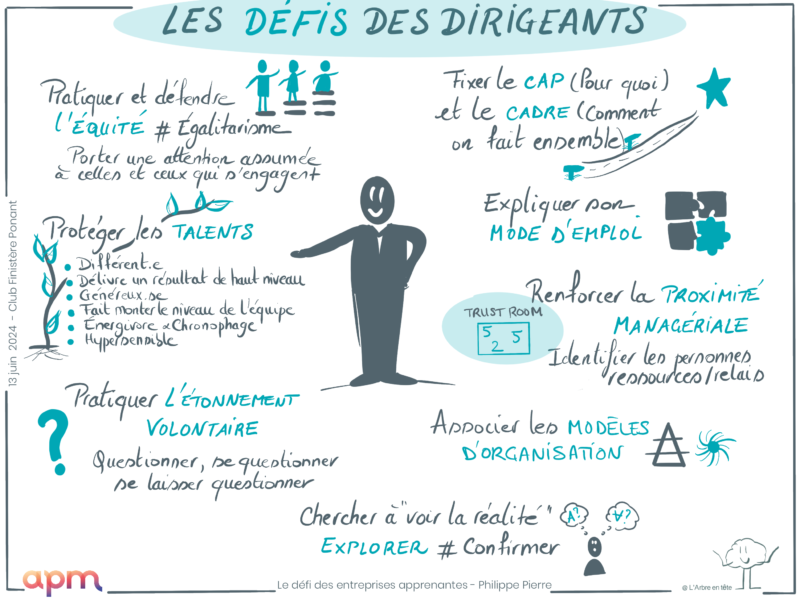 LES DÉFIS DES DIRIGEANTS
Pratiquer et défendre
l'ÉQUITÉ # Égalitarisme
Porter une attention assumée
à celles et ceux qui s'engagent
Protéger les TALENTS
Différent.e
Délivre un résultat de haut niveau
Généreux.se
Fait monter le niveau de l'équipe
Énergivore & Chronophage
Hypersensible
Pratiquer L'ÉTONNEMENT
VOLONTAIRE
?
Questionner, se questionner
se laisser questionner
Fixer le CAP (Pour quoi)
et le CADRE (Comment
on fait ensemble)
Expliquer son
MODE D'EMPLOI
Renforcer la PROXIMITÉ
MANAGÉRIALE
TRUST ROOM
5 5
2
Identifier les personnes
ressources/relais
Associer les MODÈLES
D'ORGANISATION
Chercher à "voir la réalité"
EXPLORER # Confirmer
13 juin 2024 - Club Finistère Ponant
apm
Le défi des entreprises apprenantes - Philippe Pierre
@ L'Arbre en tête